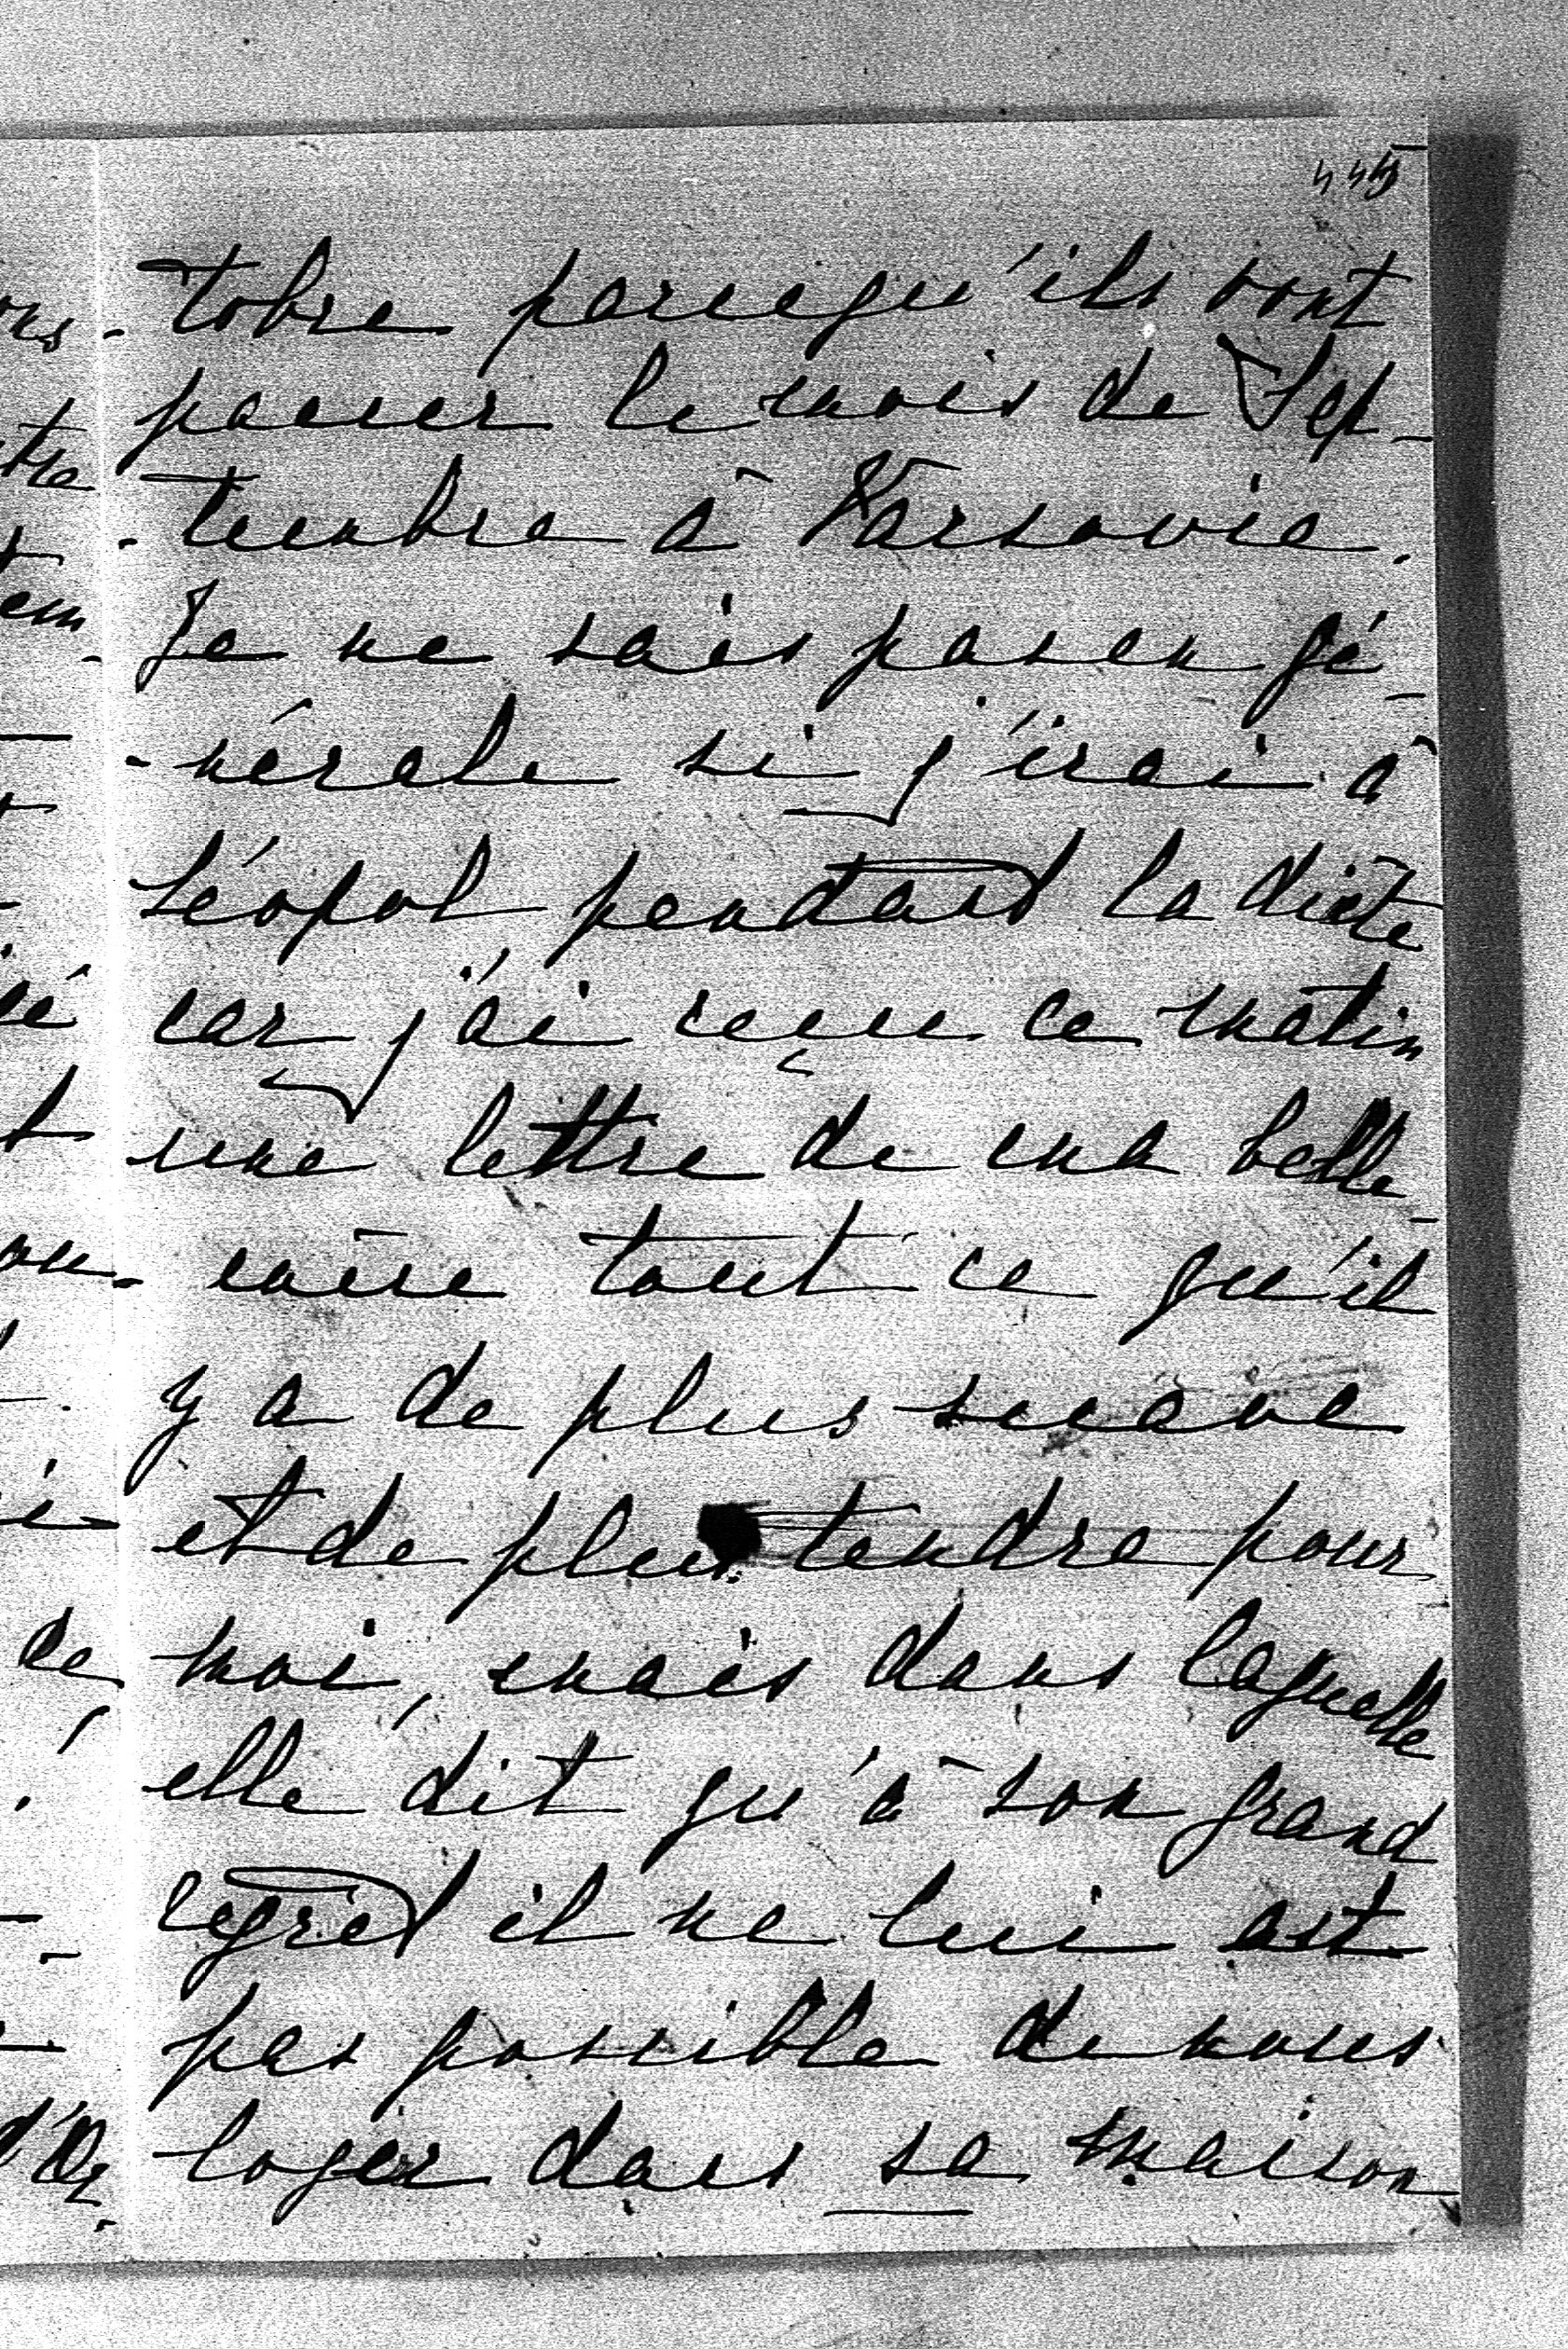 445
-tobre parcequ'ils vont
passer le mois de Sep-
-tembre à Varsovie.
Je ne sais pas en gé-
-nérale si j'irai à
Léopol pendant la diète
car j'ai reçue ce matin
une lettre de ma belle-
mère tout ce qu'il
y a de plus suave
et de plus tendre pour
moi, mais dans laquelle
elle dit qu'à son grand
regrèt il ne lui est
pas possible de nous
loger dans sa maison